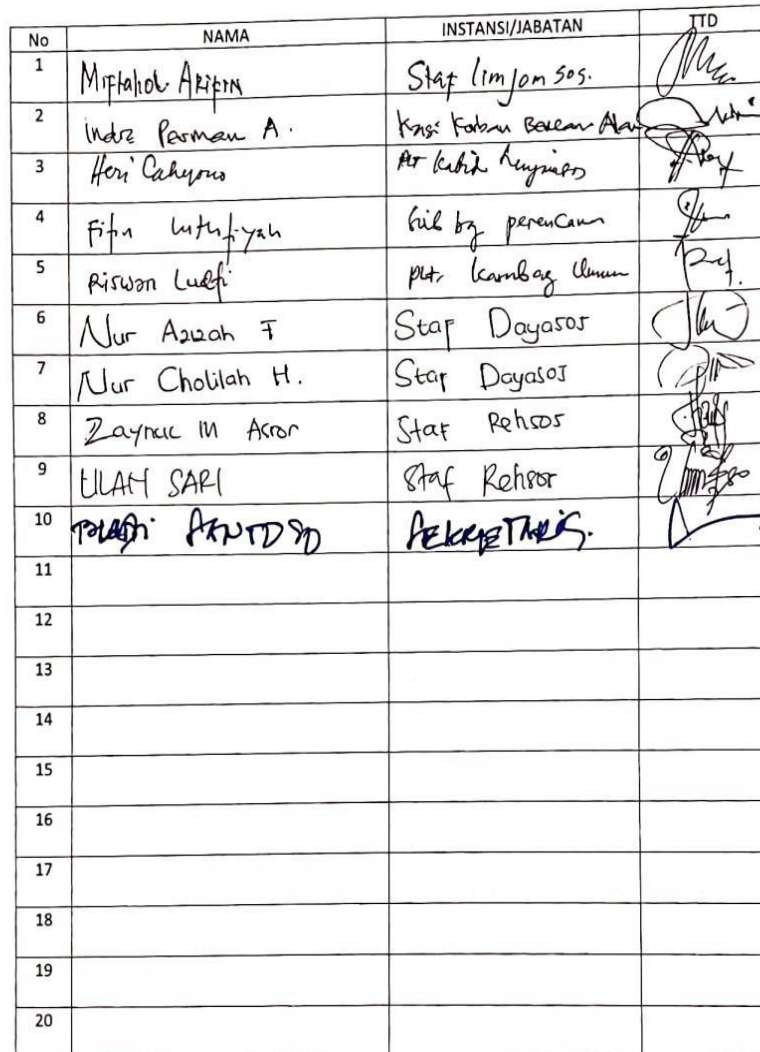 No NAMA INSTANSI/JABATAN TTD
1 Miftahol Arifin Staf limjamsos.
2 Indra Perman A. Kasi Korban Bencana Alam
3 Heri Cahyono Plt Kabid
4 Fifin Luthfiyah Sub bg perencan
5 Riswan Ludfi Plt. Kasubag Umum
6 Nur Azizah F Staf Dayasos
7 Nur Cholilah H. Staf Dayasos
8 Zaynul M Asror Staf Rehsos
9 ULAN SARI Staf Rehsos
10 SANTOSO SEKRETARIS.
11
12
13
14
15
16
17
18
19
20